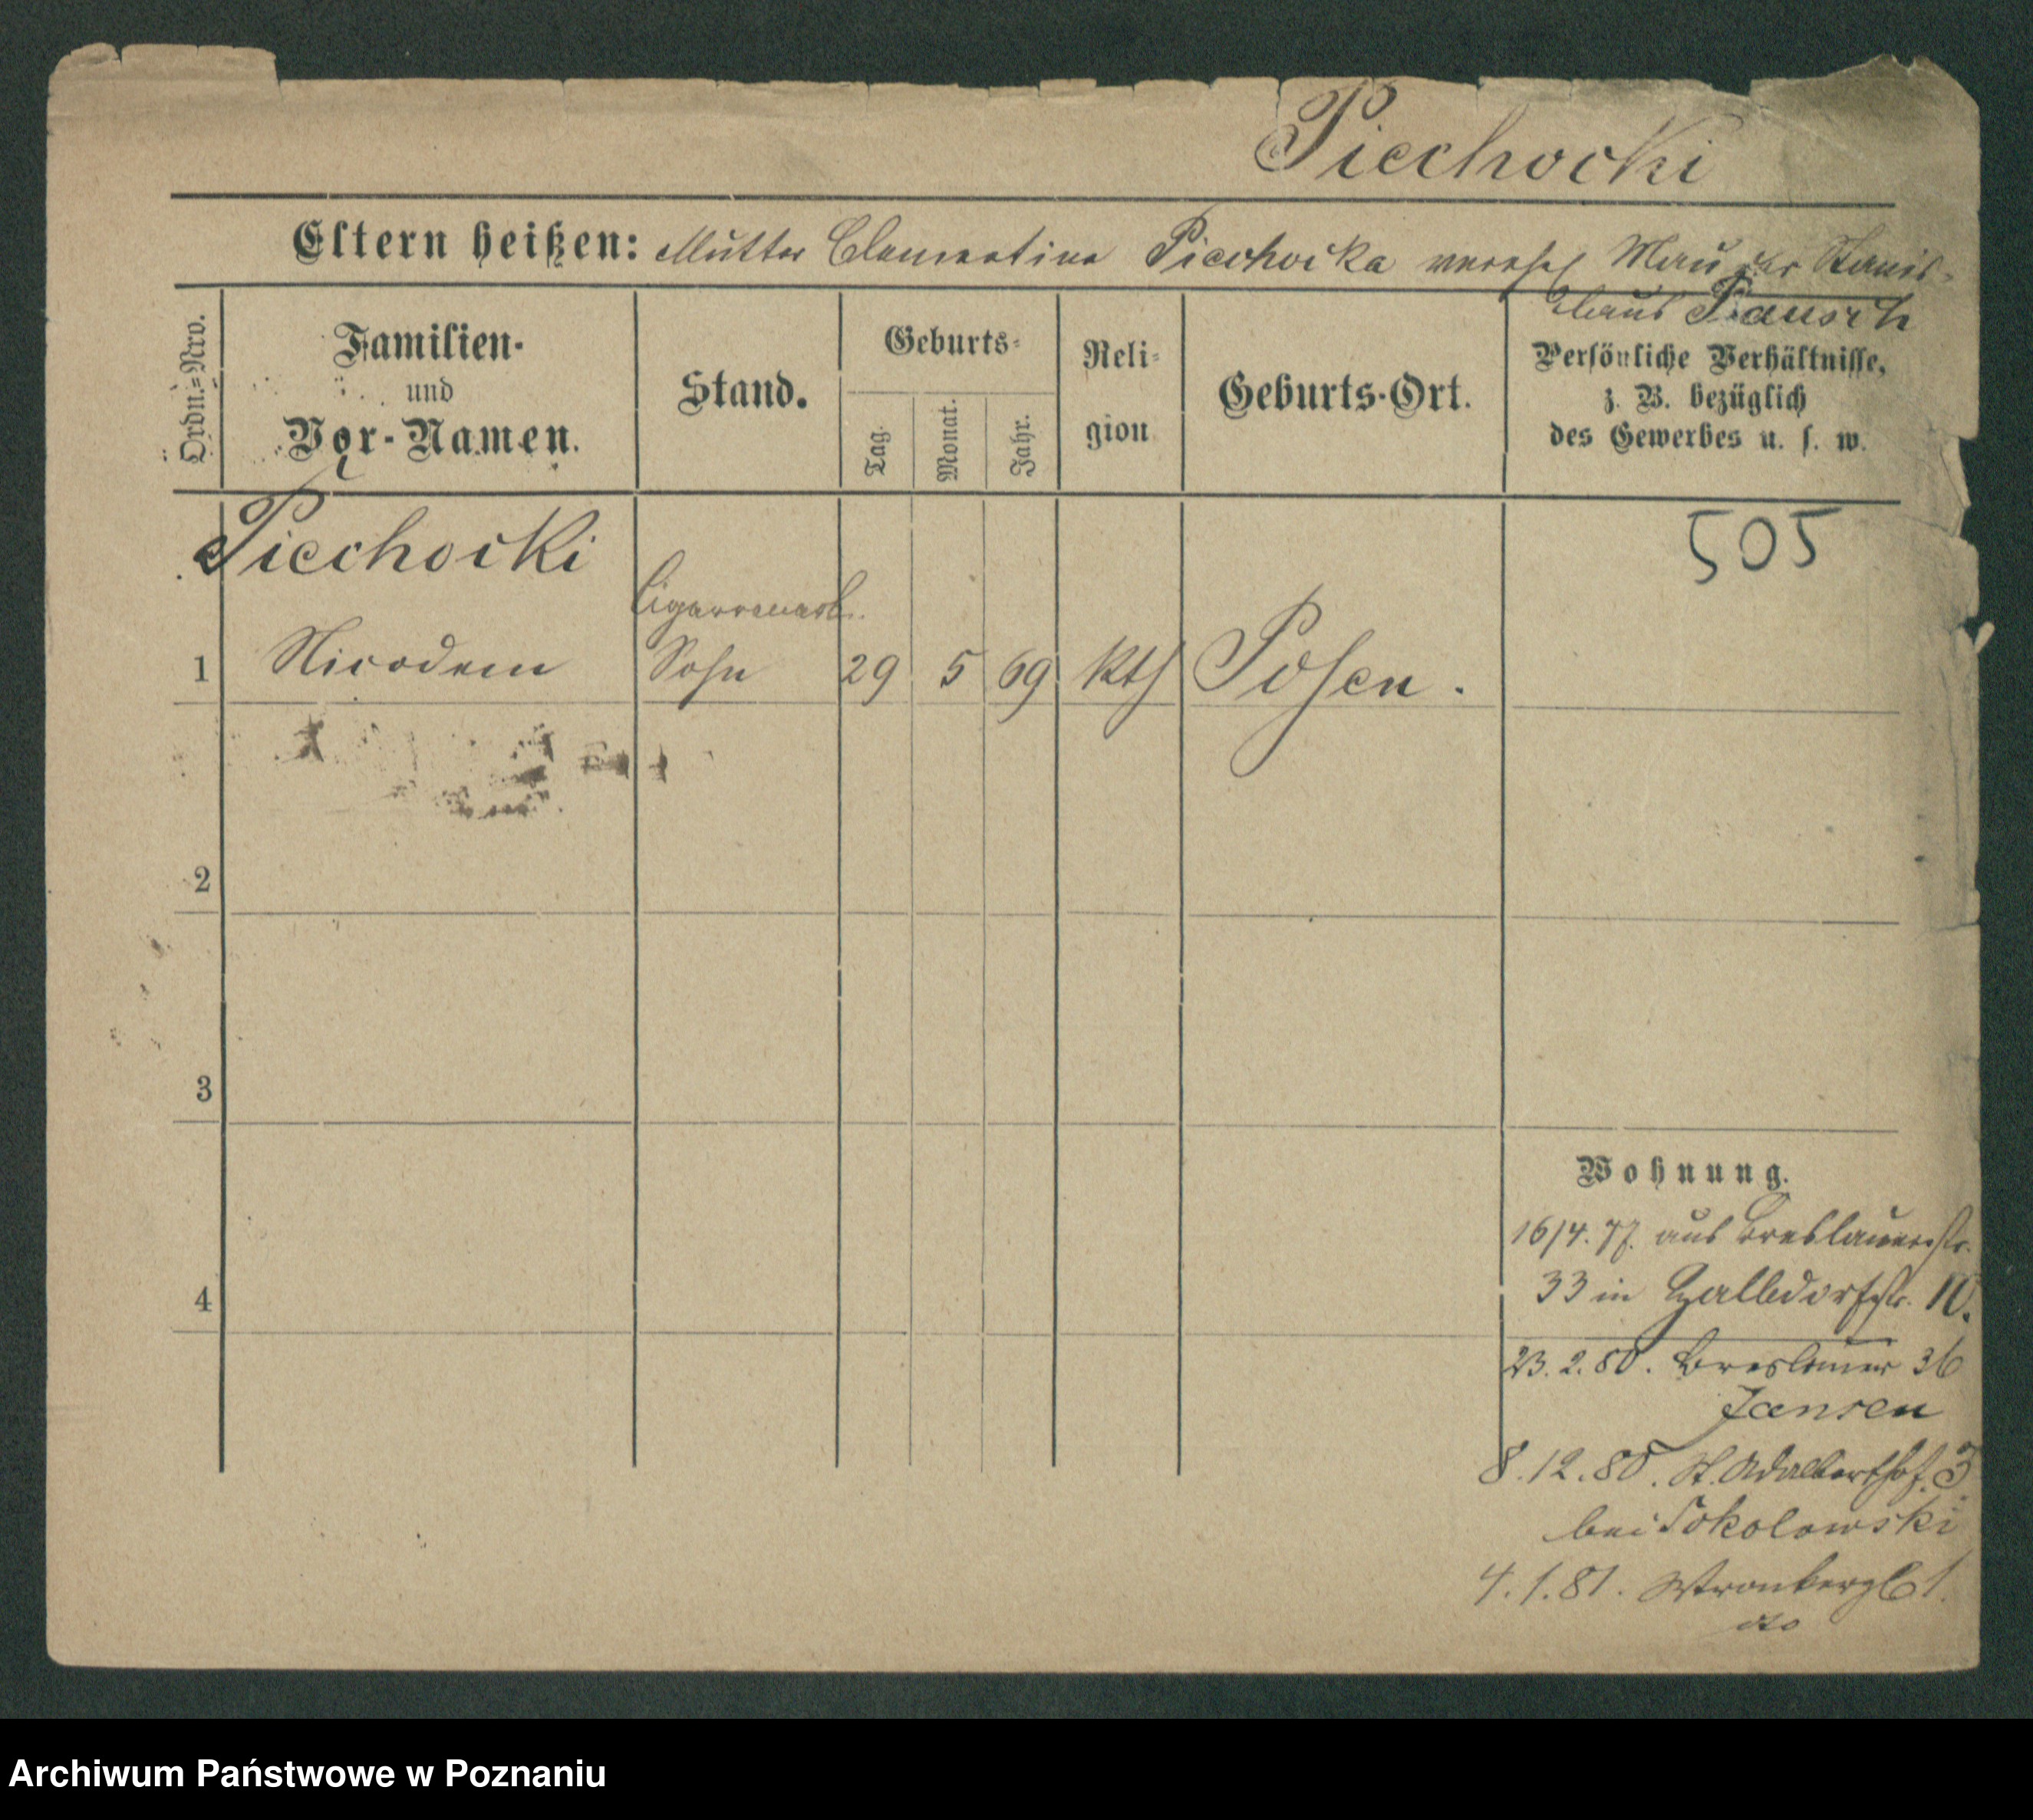 Piechocki
Eltern heißen: Mutter Clementine Piechocka verehel Maurer Stanis-
laus Pausch
Ordn.=Nro.
Familien-
und
Vor-Namen.
Stand.
Geburts-
Tag.
Monat.
Jahr.
Reli-
gion
Geburts-Ort.
Persönliche Verhältnisse,
z. B. bezüglich
des Gewerbes u. s. w.
505
Piechocki
Cigarrenarb.
1 Nicodem Sohn 29 5 69 kth Posen.
2
3
4
Wohnung.
16/4. 77. aus Breslauerstr.
33 in Halbdorfstr. 10.
23. 2. 80. Breslauer 36
Jansen
8. 12. 80. St. Adalberthof. 3
bei Sokolowski
4. 1. 81. 1.
Archiwum Państwowe w Poznaniu